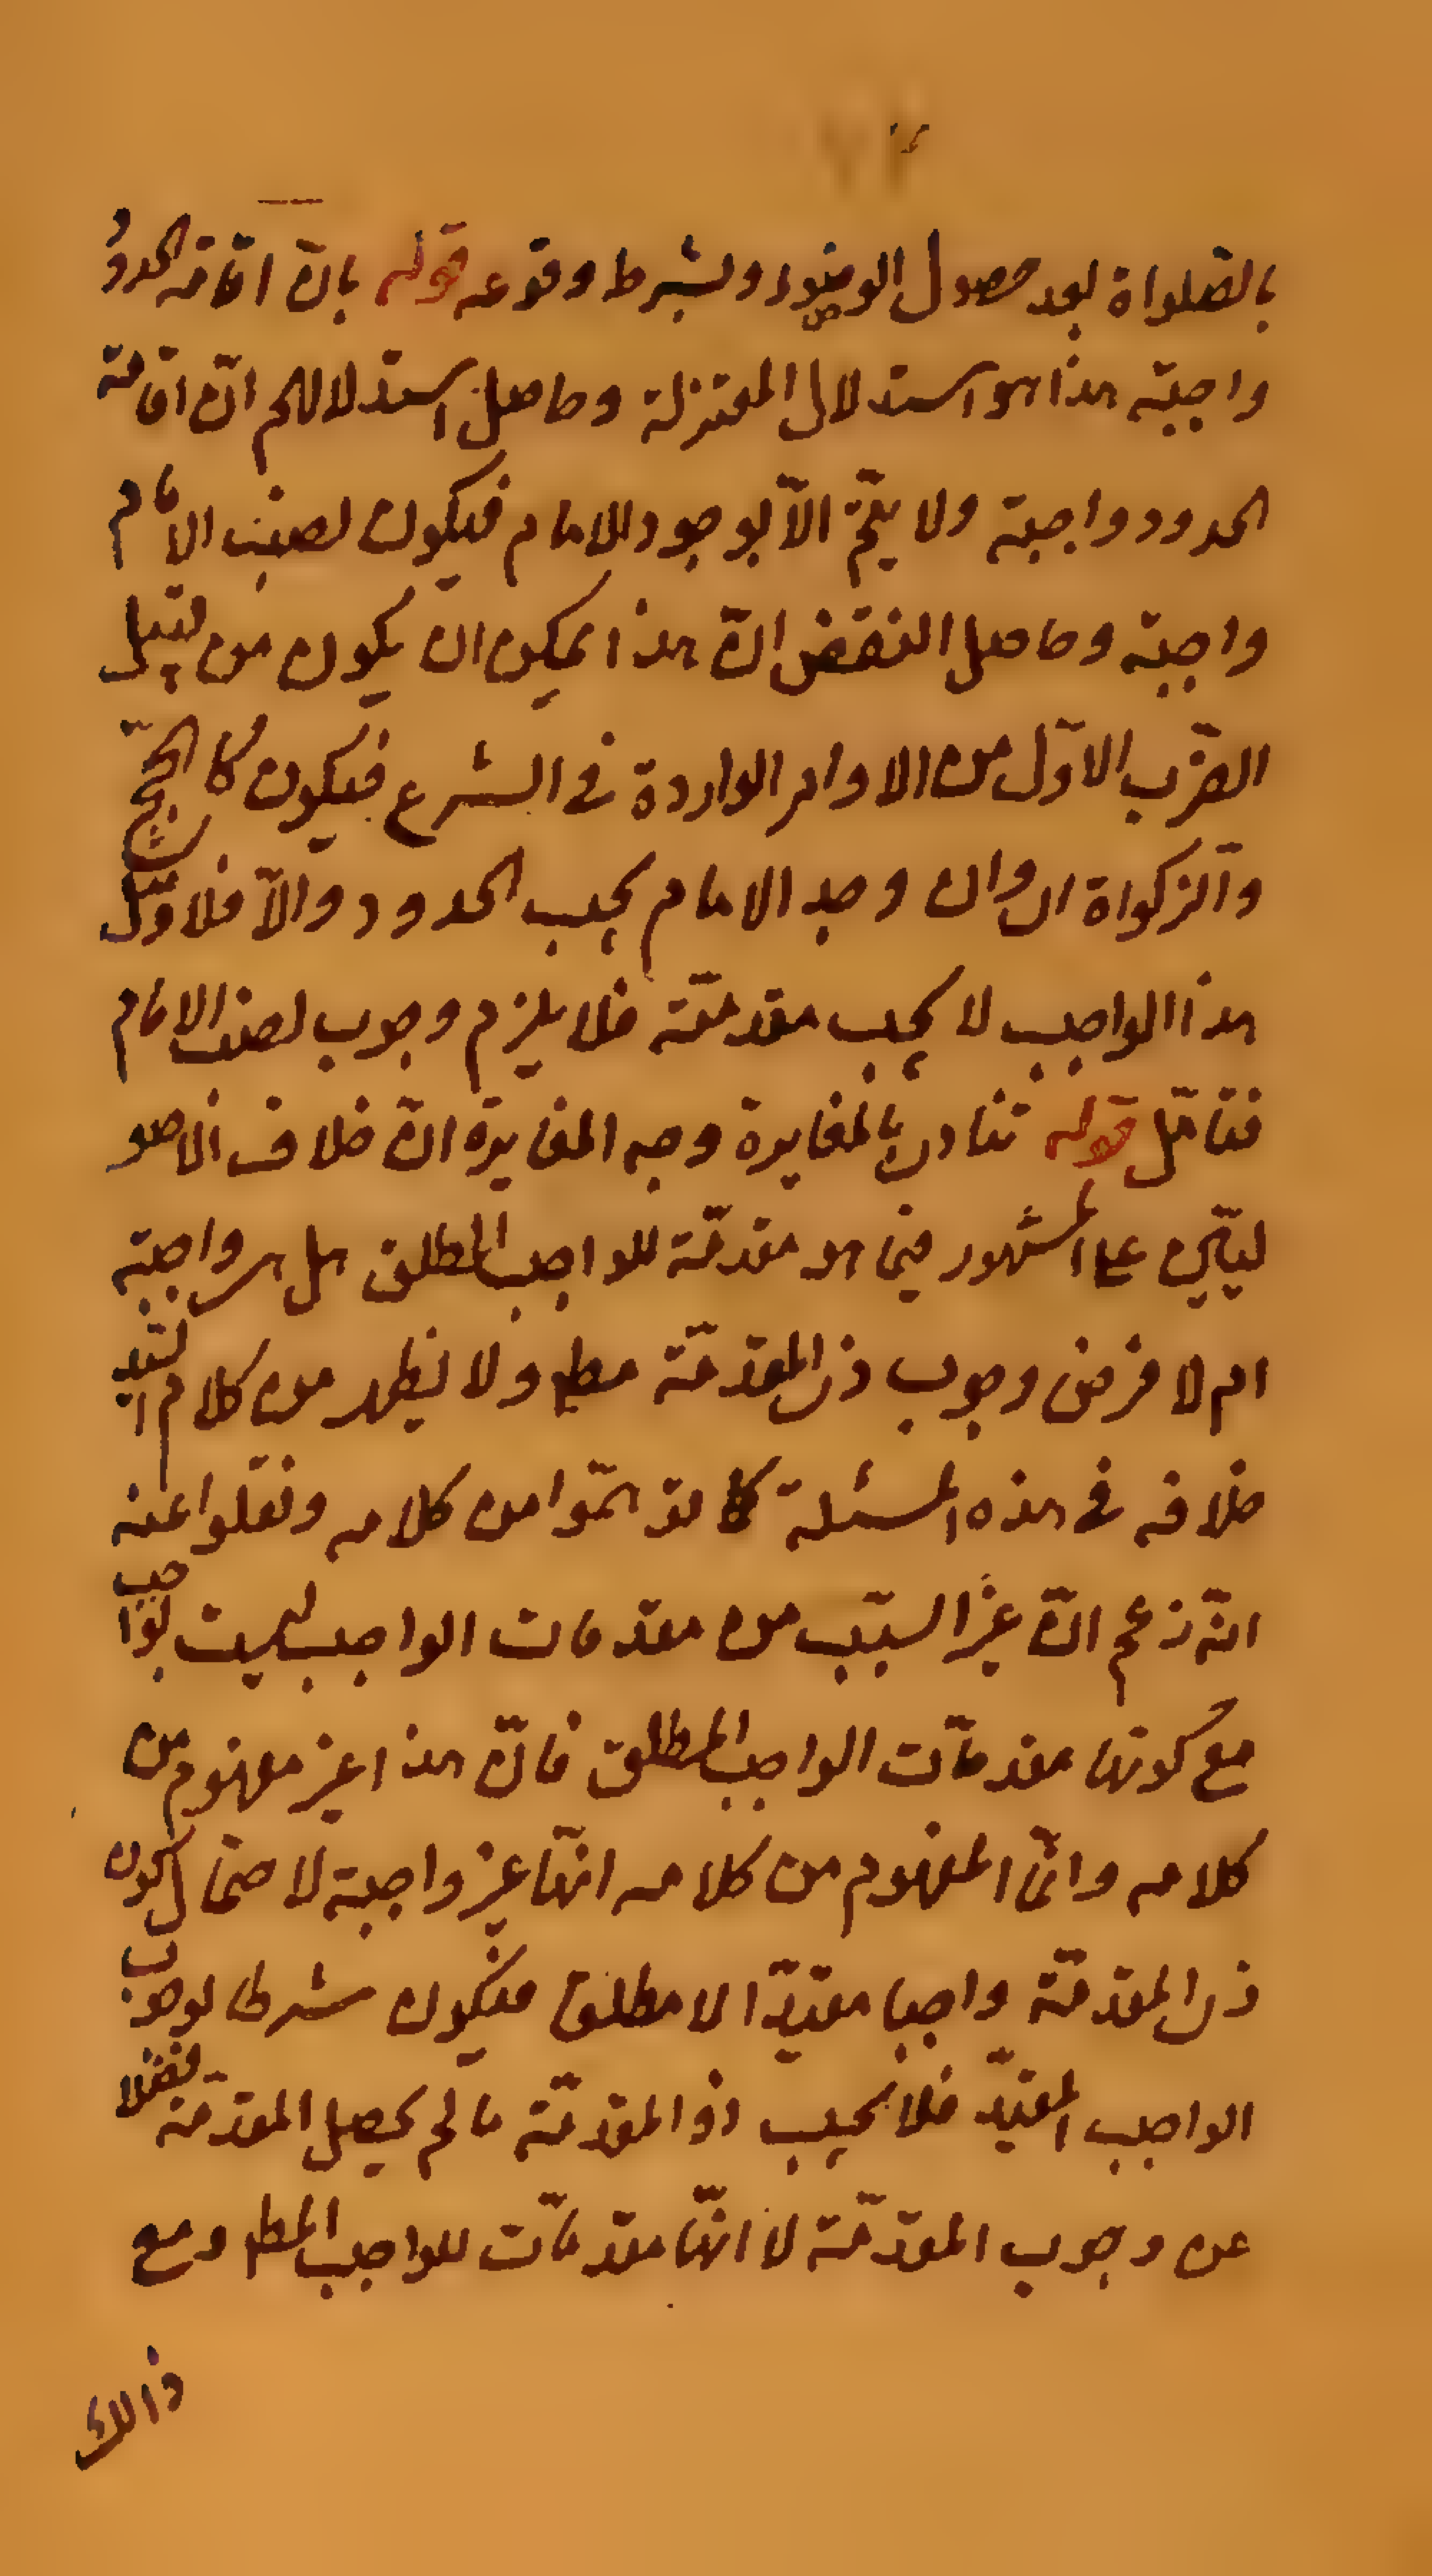 بالصّلواة بعد حصول الوضوء وبشرط وقوعه قوله بانّ اقامة الحدود
واجبة هذا هو استدلال المعتزلة وحاصل استدلالهم انّ اقامة
الحدود واجبة ولا يتمّ الّا بوجود الامام فيكون نصب الامام
واجبة وحاصل النقض انّ هذا يمكن ان يكون من قبيل
الضّرب الاوّل من الاوامر الواردة فى الشرع فيكون كالحجّ
والزكواة اى وان وجد الامام يجب الحدود والّا فلا ومثل
هذا الواجب لا يجب مقدمته فلا يلزم وجوب نصب الامام
فتامّل قوله تنادى بالمغايرة وجه المغايرة انّ خلاف الاصو
ليّين على المشهور فيما هو مقدمّة للواجب المطلق هل هى واجبة
ام لا فرض وجوب ذى المقدمّة مط ولا يظهر من كلام السّيد
خلافه فى هذه المسئلة كما توهمّوا من كلامه ونقلوا عنه
انّه زعم انّ غير السبّب من مقدمات الواجب ليست بواجب
مع كونها مقدمات الواجب المطلق فانّ هذا غير مفهوم من
كلامه وانّما المفهوم من كلامه انّها غير واجبة لاحتمال كون
ذى المقدمّة واجبا مقيّدا لا مطلقا فيكون شرطا لوجوب
الواجب المقيّد فلا يجب ذو المقدمّة ما لم يحصل المقدمّة فضلا
عن وجوب المقدمّة لا انّها مقدمّات للواجب المط ومع
ذالك